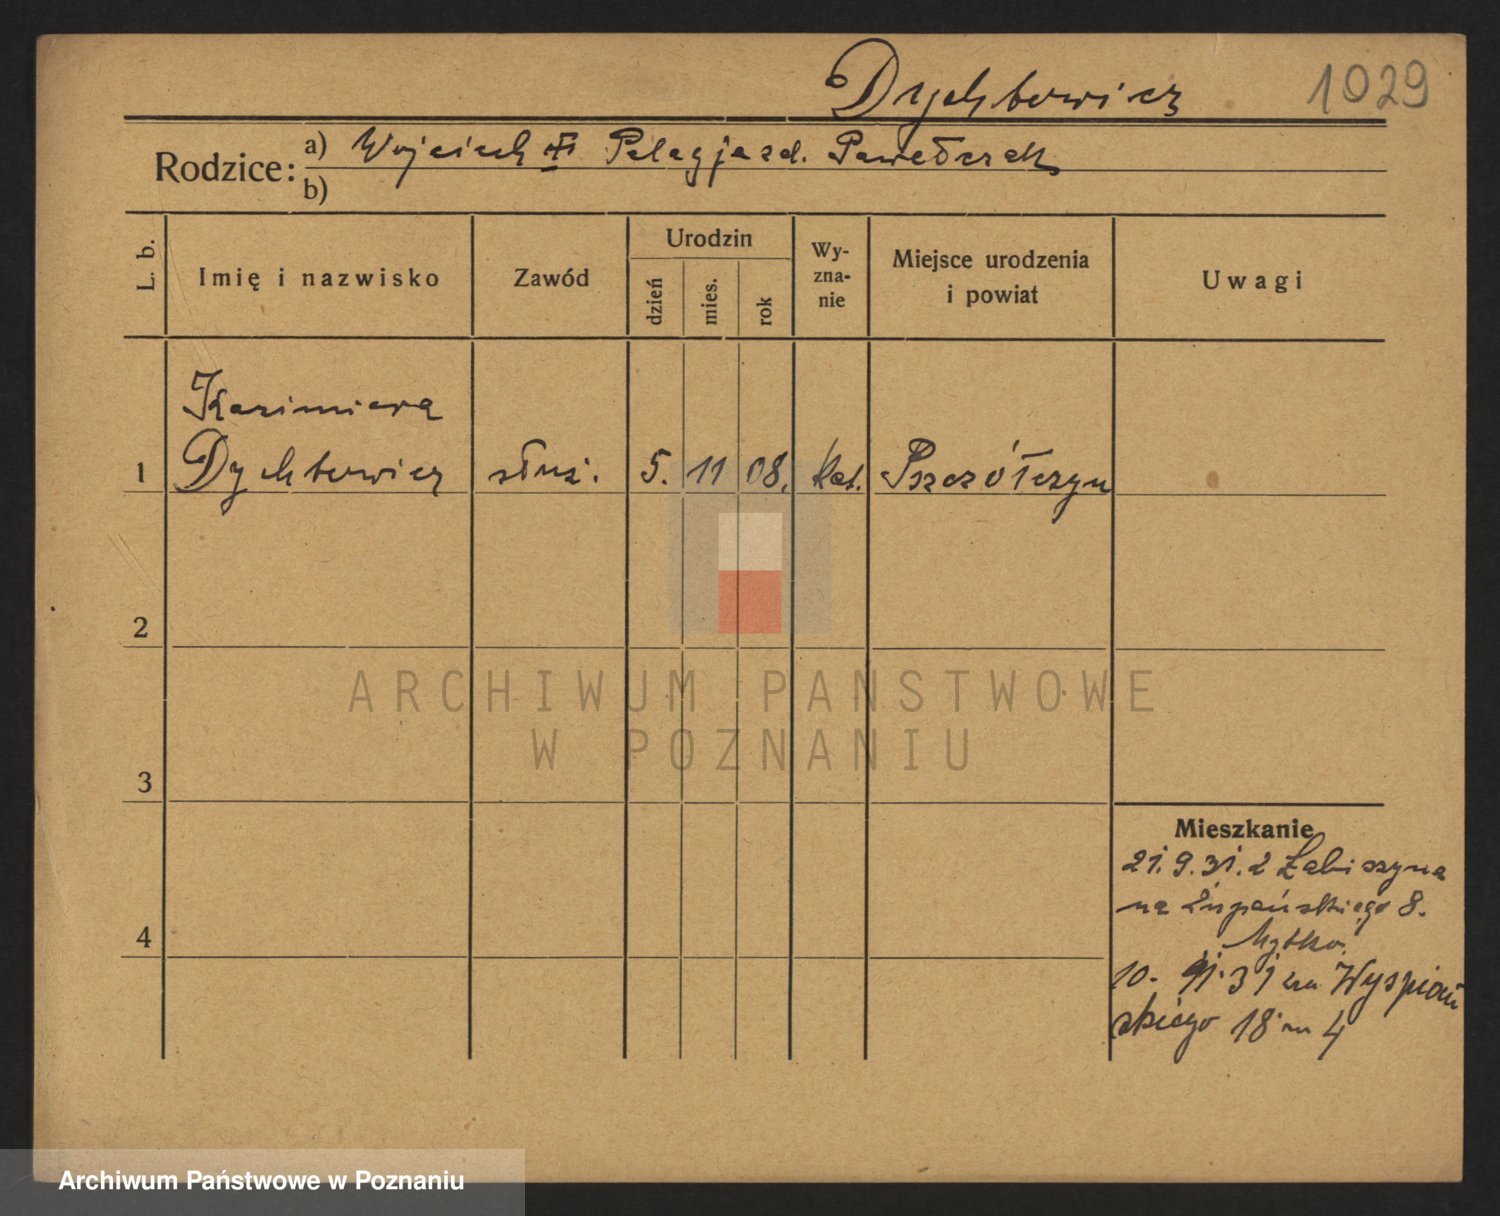 Dychtowicz 1029
Rodzice: a) Wojciech i Pelagja zd. Pawełczak
b)
L. b. Imię i nazwisko Zawód Urodzin dzień mies. rok Wy-zna-nie Miejsce urodzenia i powiat Uwagi
Kazimiera
1 Dychtowicz służ. 5. 11 08. kat. Pszczółczyn
2
ARCHIWUM PAŃSTWOWE
W POZNANIU
3
Mieszkanie
21. 9. 31. z Łabiszyna
na Łupańskiego 8.
4
10. 31 na Wyspiań
skiego 18 m 4
Archiwum Państwowe w Poznaniu